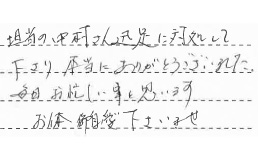 担当の中村さん迅速に対応して
下さり本当にありがとうございました。
毎日お忙しい事と思います
お体御自愛下さいませ